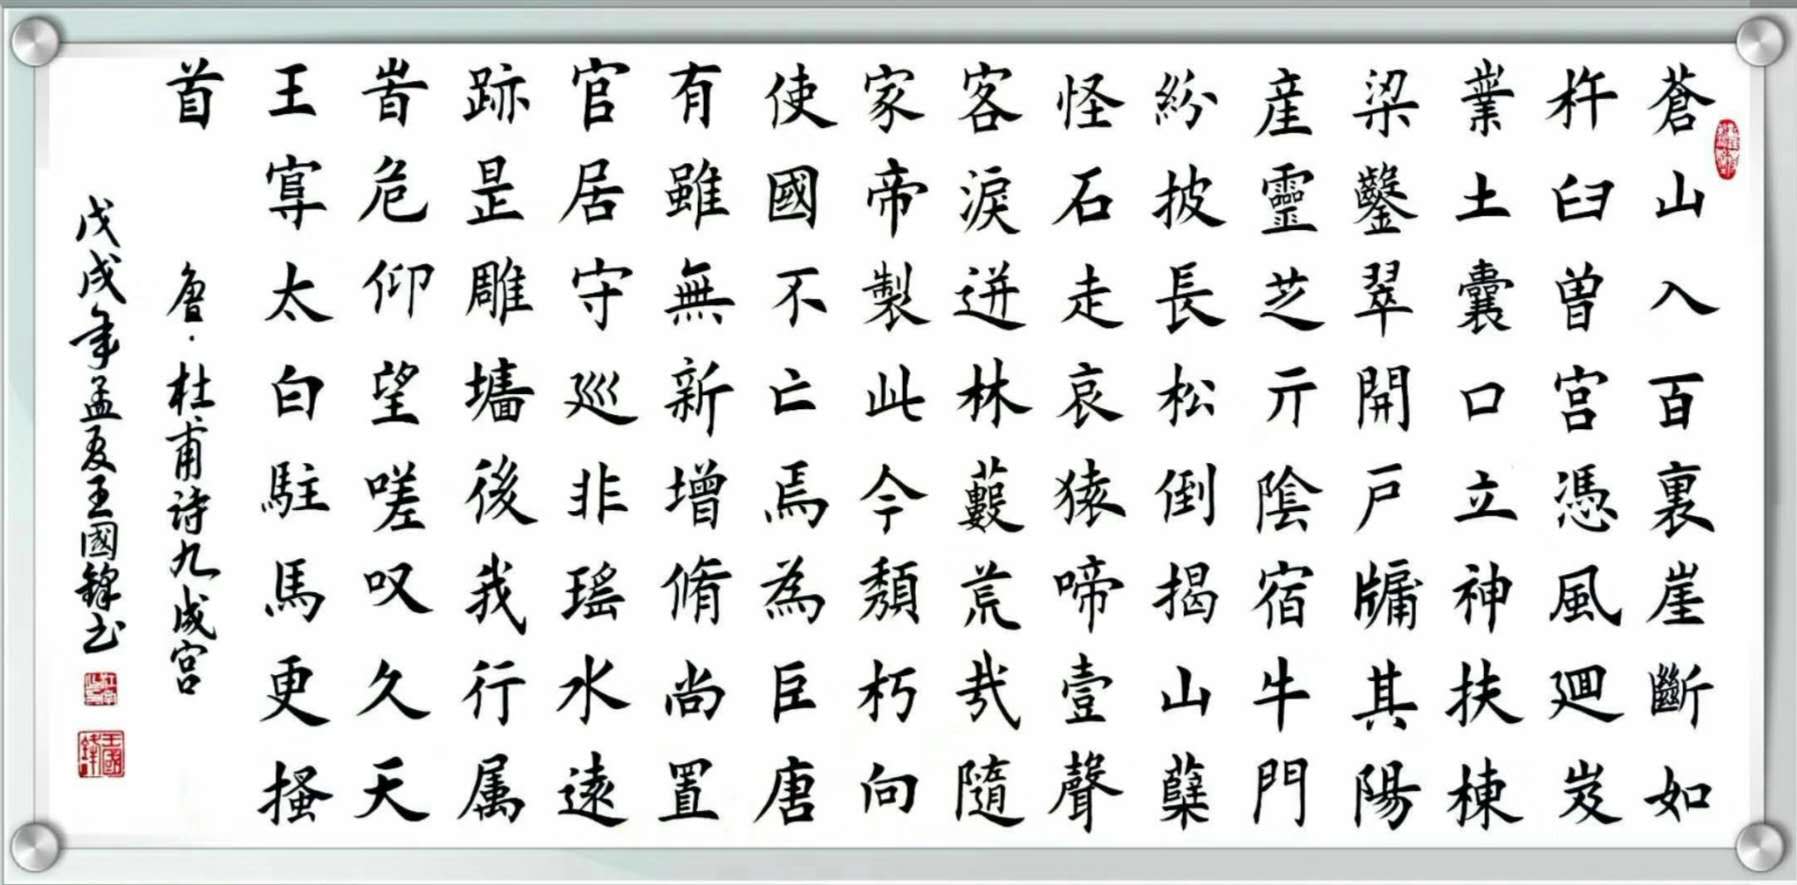 蒼山入百裏崖斷如
杵臼曽宮憑風迴岌
業土囊口立神扶棟
梁鑿翠開戶牖其陽
産靈芝亓陰宿牛門
紛披長松倒揭山蘖
怪石走哀猿啼壹聲
客淚迸林藪荒哉隨
家帝製此今頹朽向
使國不亡焉為巨唐
有雖無新增脩尚置
官居守巡非瑤水遠
跡是雕墻後我行属
旹危仰望嗟叹久天
王太白駐馬更搔
首 唐·杜甫詩九成宮
戊戌年孟夏王國鋒书